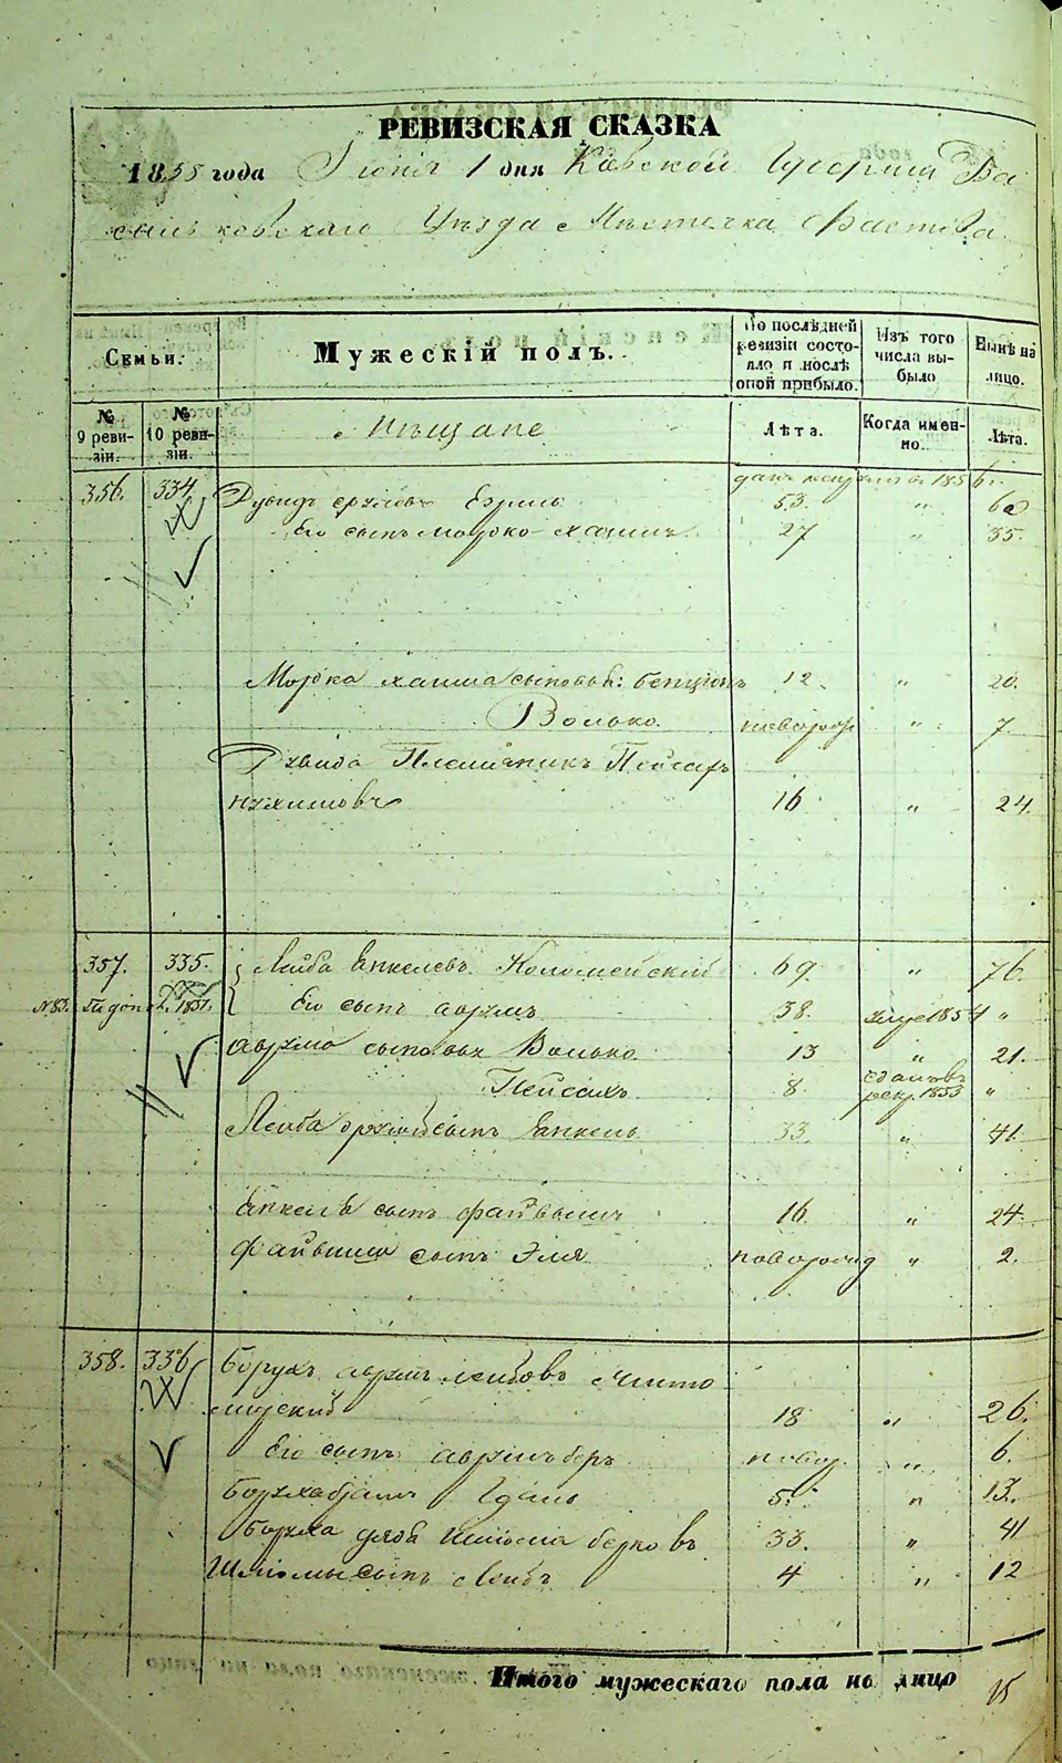 РЕВИЗСКАЯ СКАЗКА
1855 года Іюня 1 дня Кіевской Губерніи Ва
сильковскаго Уѣзда Мѣстечка Фастова
Семьи.
Мужескій полъ.
По послѣдней ревизіи состояло и послѣ оной прибыло.
Изъ того числа выбыло
Нынѣ на лицо.
№ 9 ревизіи.
№ 10 ревизіи.
Мѣщане
Лѣта.
Когда именно.
Лѣта.
1856
356. 334 Дувидъ Сруль 53. " 60
Его сынъ Мордко-Хаимъ 27 " 35.
Мордка Хаима сыновья: Бенціонъ 12. " 20.
Волько. новорож " 7.
Дувида Племянникъ Пейсахъ
Нухимовъ 16 " 24.
357. 335. Лейба Янкелевъ Коломейскій 69 " 76.
№ 83. 2. 1851. Его сынъ Аврумъ 38. умре 1854 "
Аврума сыновья Волько 13 " 21.
Пейсахъ 8. сданъ въ рекр. 1853 "
Лейба сынъ Янкель 33. " 41
Янкеля сынъ Файвишъ 16. " 24.
Файвиша сынъ Эля новорожд " 2.
358. 336 Борухъ Аврумъ Лейбовъ Жито
мирский 18 " 26.
Его сынъ Аврумъ Беръ новор. " 6.
Боруха братъ Іданъ 5. " 13.
Боруха дядя Шліома Берковъ 33. " 41
Шліомы сынъ Лейбъ 4 " 12
Итого мужескаго пола на лицо 15